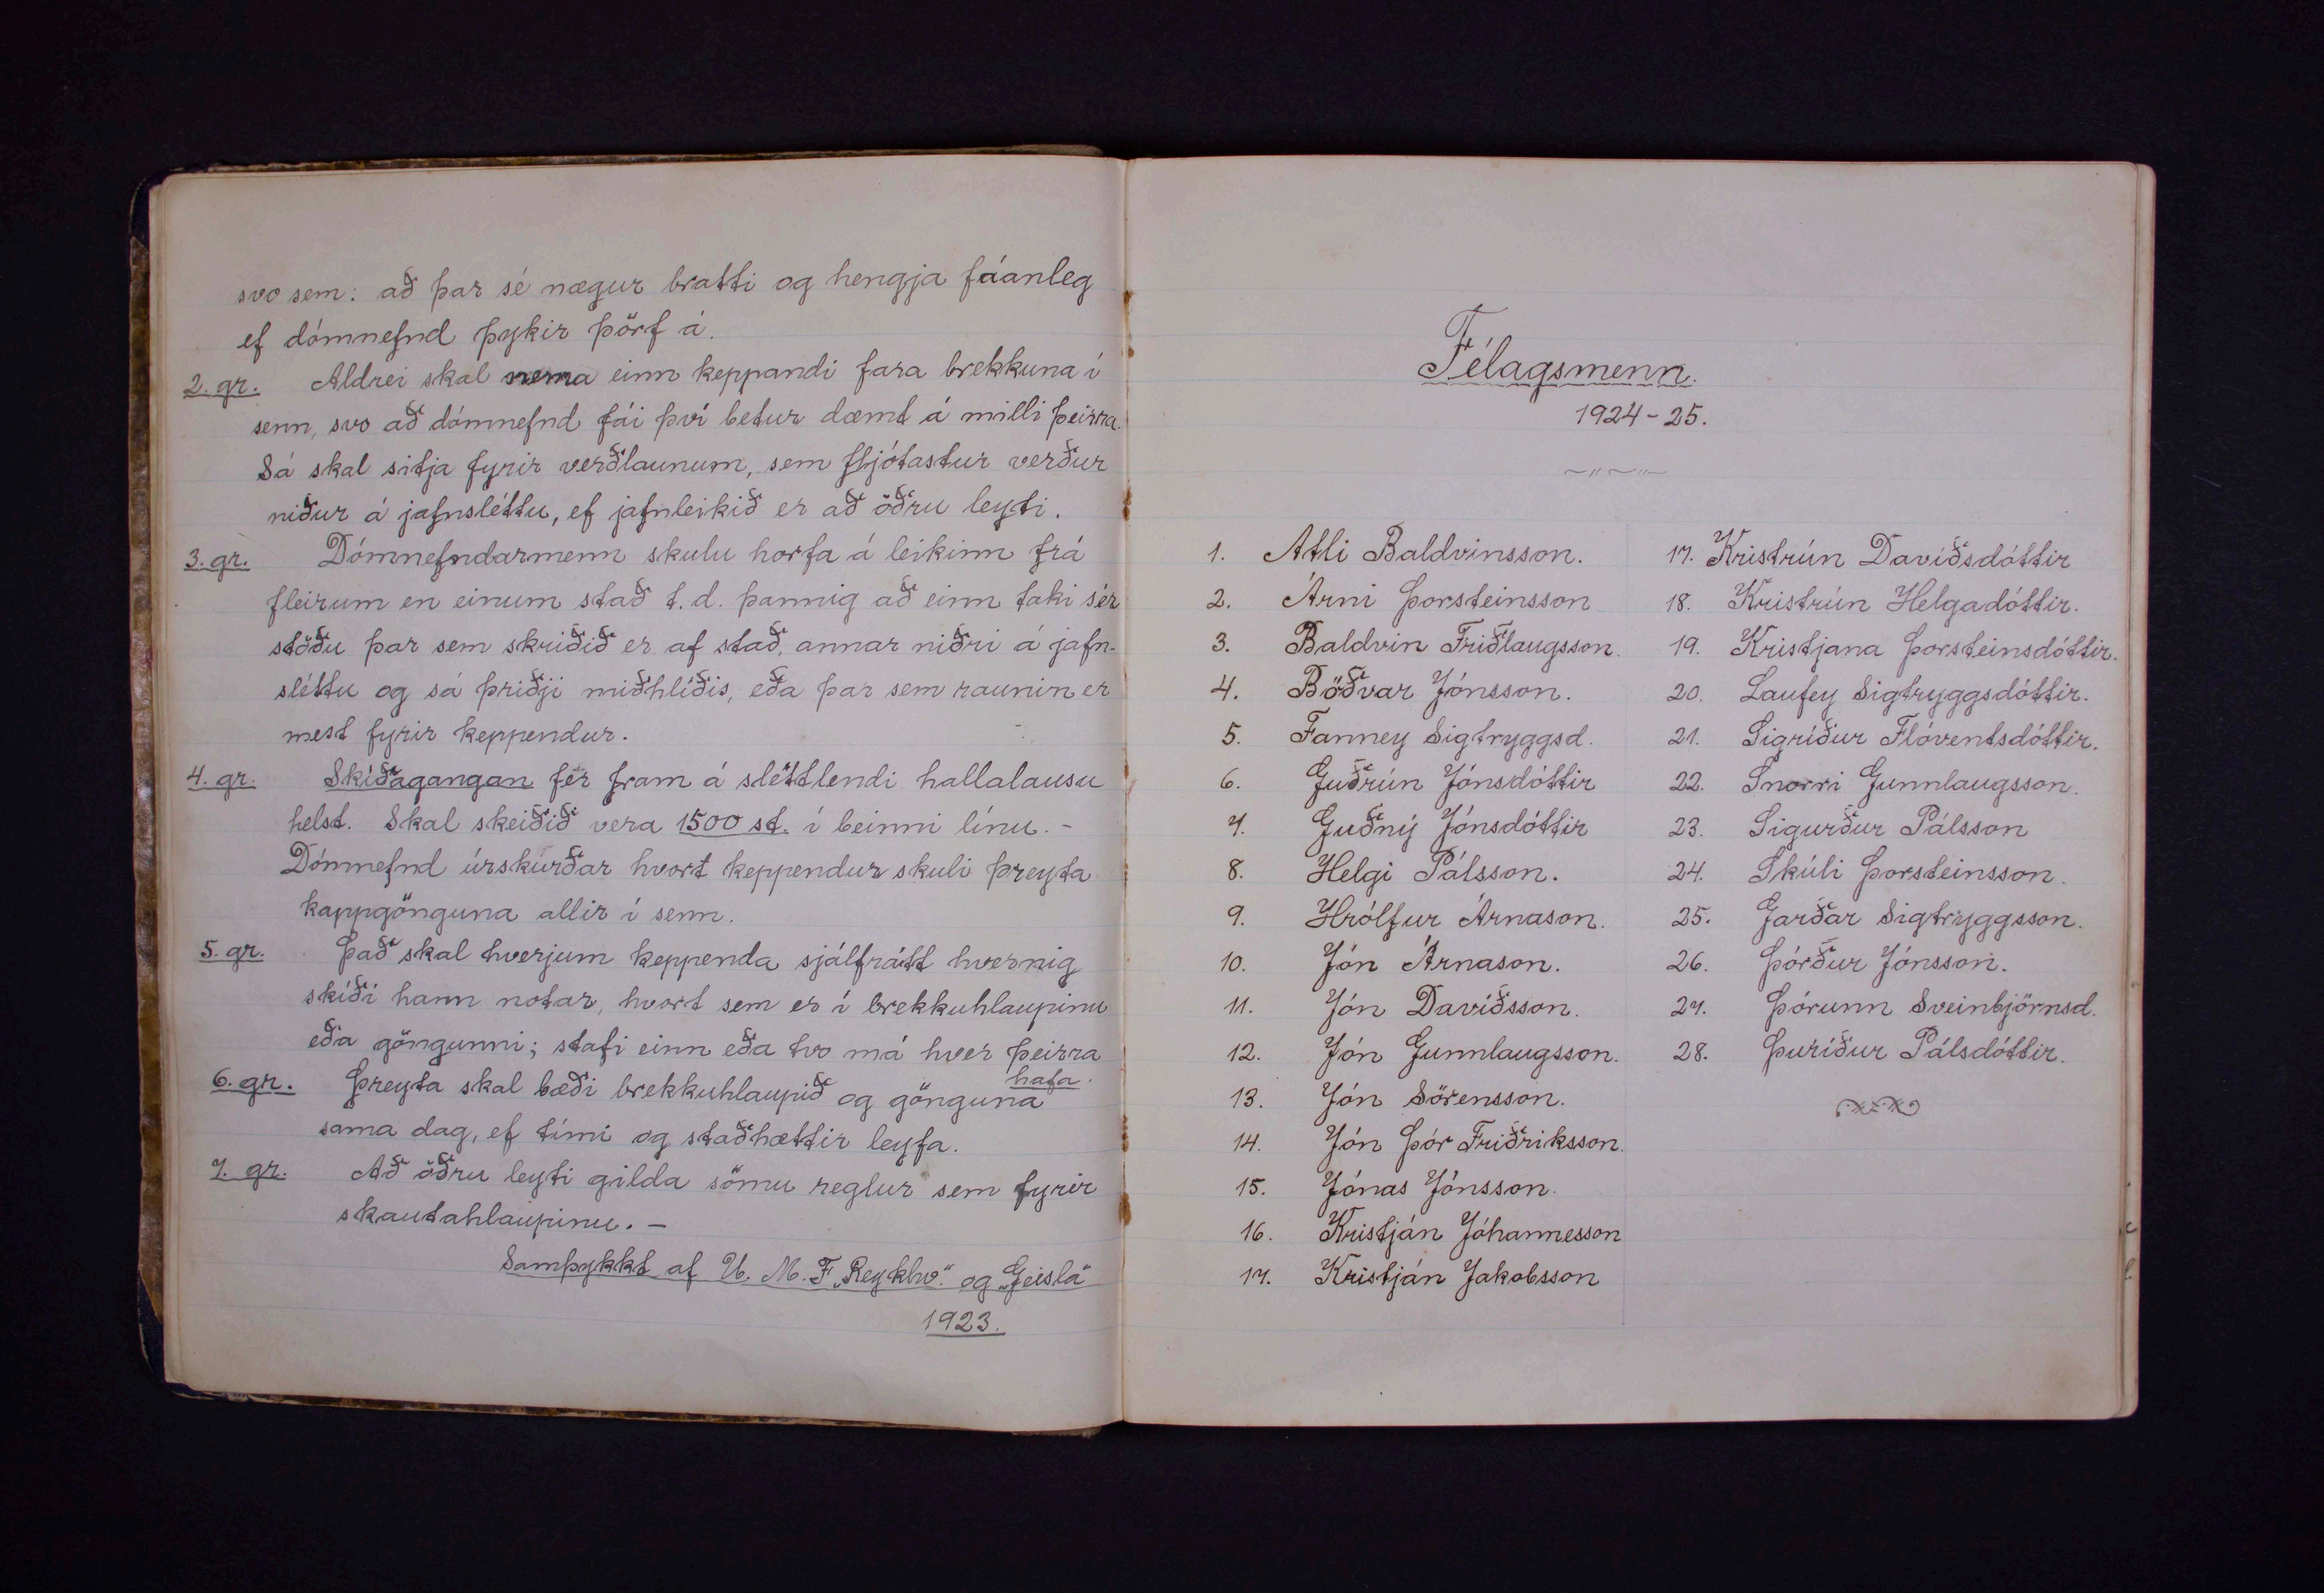 svo sem: að þar sé nægur bratti og hengja fáanleg
ef dómnefnd þykir þörf á.
2. gr. Aldrei skal nema einn keppandi fara brekkuna í
senn, svo að dómnefnd fái því betur dæmt á milli þeirra.
Sá skal sitja fyrir verðlaunum, sem fljótastur verður
niður á jafnsléttu, ef jafnleikið er að öðru leyti.
3. gr. Dómnefndarmenn skulu horfa á leikinn frá
fleirum en einum stað t.d. þannig að einn taki sér
stöðu þar sem skriðið er af stað, annar niðri á jafn-
sléttu og sá þriðji miðhlíðis, eða þar sem raunin er
mest fyrir keppendur.
4. gr. Skíðagangan fer fram á sléttlendi hallalausu
helst. Skal skeiðið vera 1500 st. í beinni línu. -
Dómnefnd úrskurðar hvort keppendur skuli þreyta
kappgönguna allir í senn.
5. gr. Það skal hverjum keppenda sjálfrátt hvernig
skíði hann notar, hvort sem er í brekkuhlaupinu
eða göngunni; stafi einn eða tvo má hver þeirra
hafa.
6. gr. Þreyta skal bæði brekkuhlaupið og gönguna
sama dag, ef tími og staðhættir leyfa.
7. gr. Að öðru leyti gilda sömu reglur sem fyrir
skautahlaupinu. -
Samþykkt af U. M. F. „Reykhv." og „Geisla"
1923.
Félagsmenn.
1924-25.
1. Atli Baldvinsson.
2. Árni Þorsteinsson
3. Baldvin Friðlaugsson.
4. Böðvar Jónsson.
5. Fanney Sigtryggsd.
6. Guðrún Jónsdóttir
7. Guðný Jónsdóttir
8. Helgi Pálsson.
9. Hrólfur Árnason.
10. Jón Árnason.
11. Jón Davíðsson.
12. Jón Gunnlaugsson.
13. Jón Sörensson.
14. Jón Þór Friðriksson.
15. Jónas Jónsson.
16. Kristján Jóhannesson
17. Kristján Jakobsson
17. Kristrún Davíðsdóttir
18. Kristrún Helgadóttir.
19. Kristjana Þorsteinsdóttir.
20. Laufey Sigtryggsdóttir.
21. Sigríður Flóventsdóttir.
22. Snorri Gunnlaugsson.
23. Sigurður Pálsson
24. Skúli Þorsteinsson.
25. Garðar Sigtryggsson.
26. Þórður Jónsson.
27. Þórunn Sveinbjörnsd.
28. Þuríður Pálsdóttir.